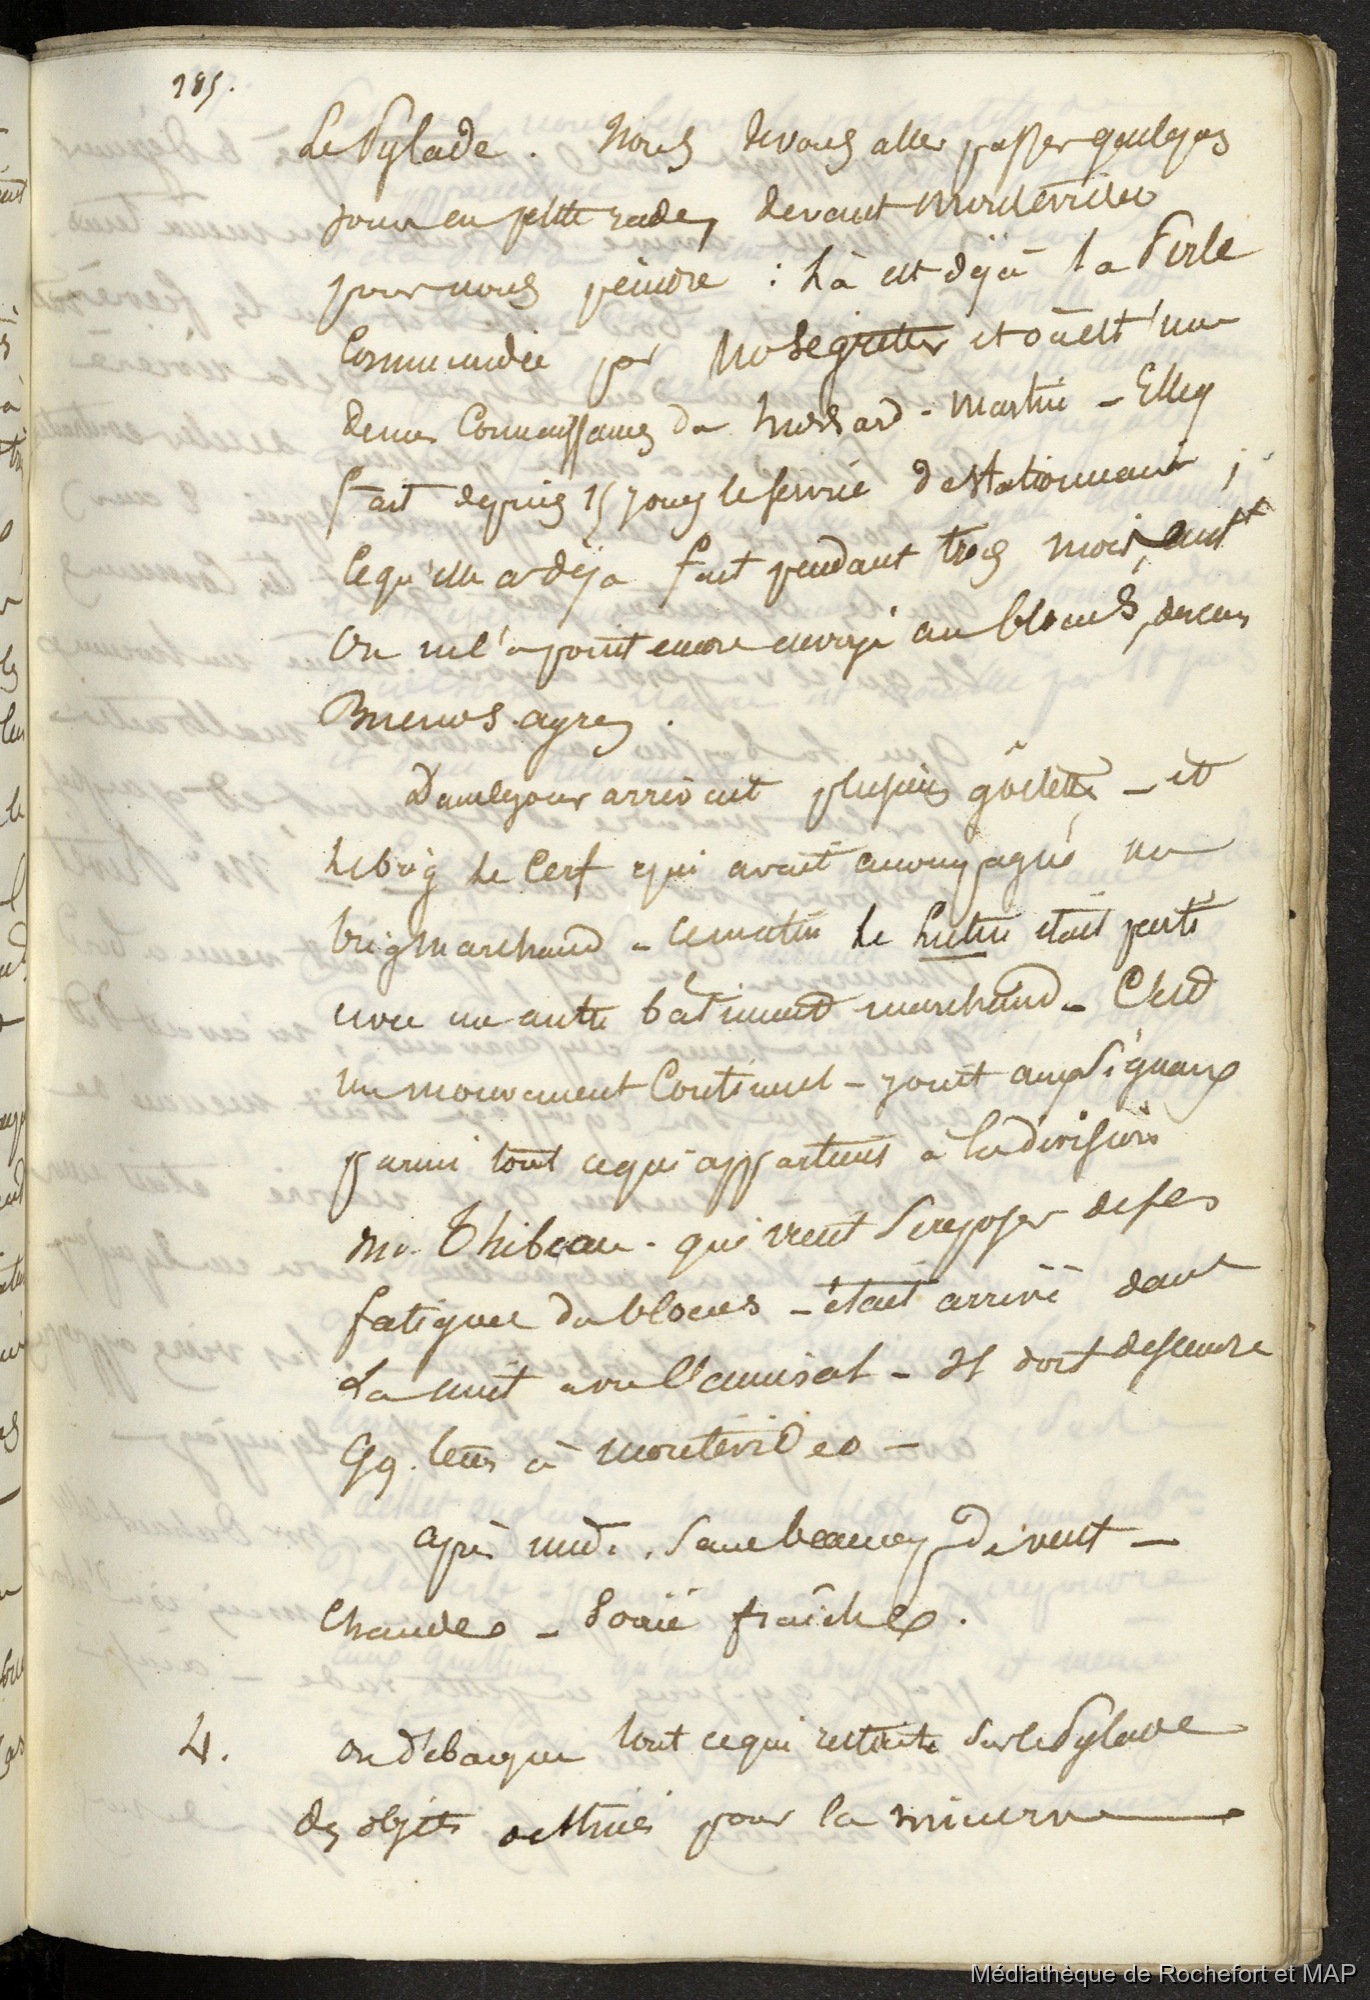 185.
Le Pylade. Nous devons aller passer quelques
jours en petite rade, devant Montevideo
pour nous peindre : Là est déjà la Perle
Commandée par Mr Segretier et où est une
demes Connaissances du hussard - Martin - Elle
fait depuis 15 jours le service de stationnaire ;
Ce qu'elle a déjà fait pendant trois mois, aussi
on ne l'a point encore envoyé au blocus, devant
Buenos ayres.
Dans le jour arrivait plusieurs goëlettes - et
le brig Le Cerf qui avait accompagné un
brig marchand - ce matin le était parti
avec un autre batiment marchand - C'est
un mouvement Continuel - joint aux Signaux
parmi tout ce qui appartient à la division
Mr. Thibeau - qui vient se reposer de ses
fatigues du blocus - était arrivé dans
La nuit avec l'amiral - Il doit descendre
qq. tems à Montévideo -
après midi. Sans beaucoup de vent -
Chaude - Soirée fraîche.
4. on débarque tout ce qui restait sur le Pylade
des objets destinés pour la minerve
Médiathèque de Rochefort et MAP